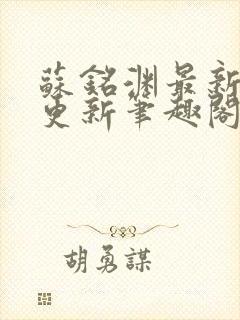 蘇銘渊最新
更新筆趣閣
胡勇謀